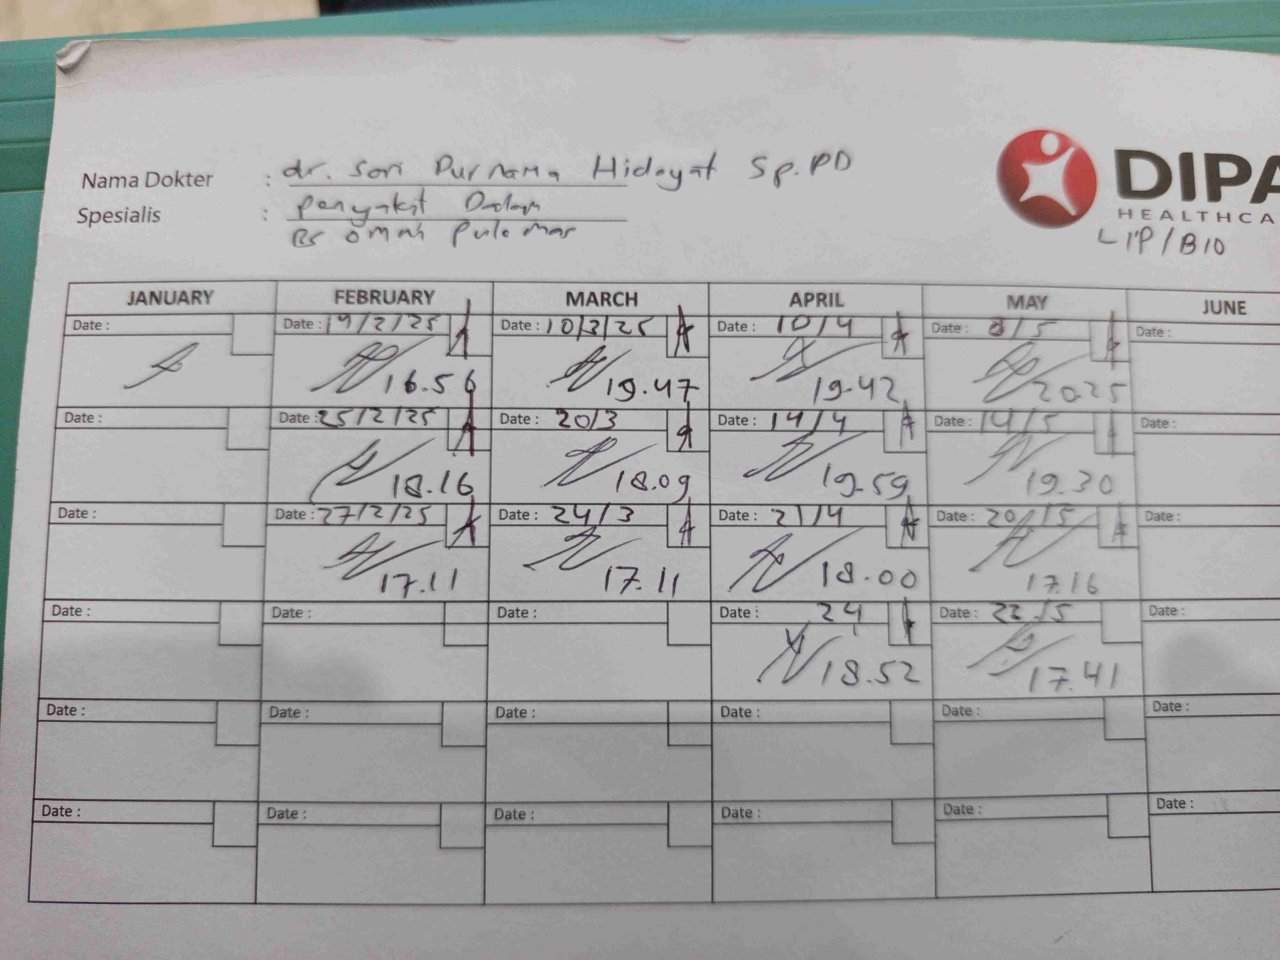 Nama Dokter : dr. Sori Purnama Hidayat Sp.PD
Spesialis : Penyakit Dalam
Rs Omni Pulomas
DIPA
HEALTHCA
LIP/BIO
JANUARY FEBRUARY MARCH APRIL MAY JUNE
Date : Date : 19/2/25 Date : 10/3/25 Date : 10/4 Date : 8/5 Date :
16.56 19.47 19.42 20.25
Date : Date : 25/2/25 Date : 20/3 Date : 14/4 Date : 14/5 Date :
18.16 18.09 19.59 19.30
Date : Date : 27/2/25 Date : 24/3 Date : 21/4 Date : 20/5 Date :
17.11 17.11 18.00 17.16
Date : Date : Date : Date : 24 Date : 22/5 Date :
18.52 17.41
Date : Date : Date : Date : Date : Date :
Date : Date : Date : Date : Date : Date :